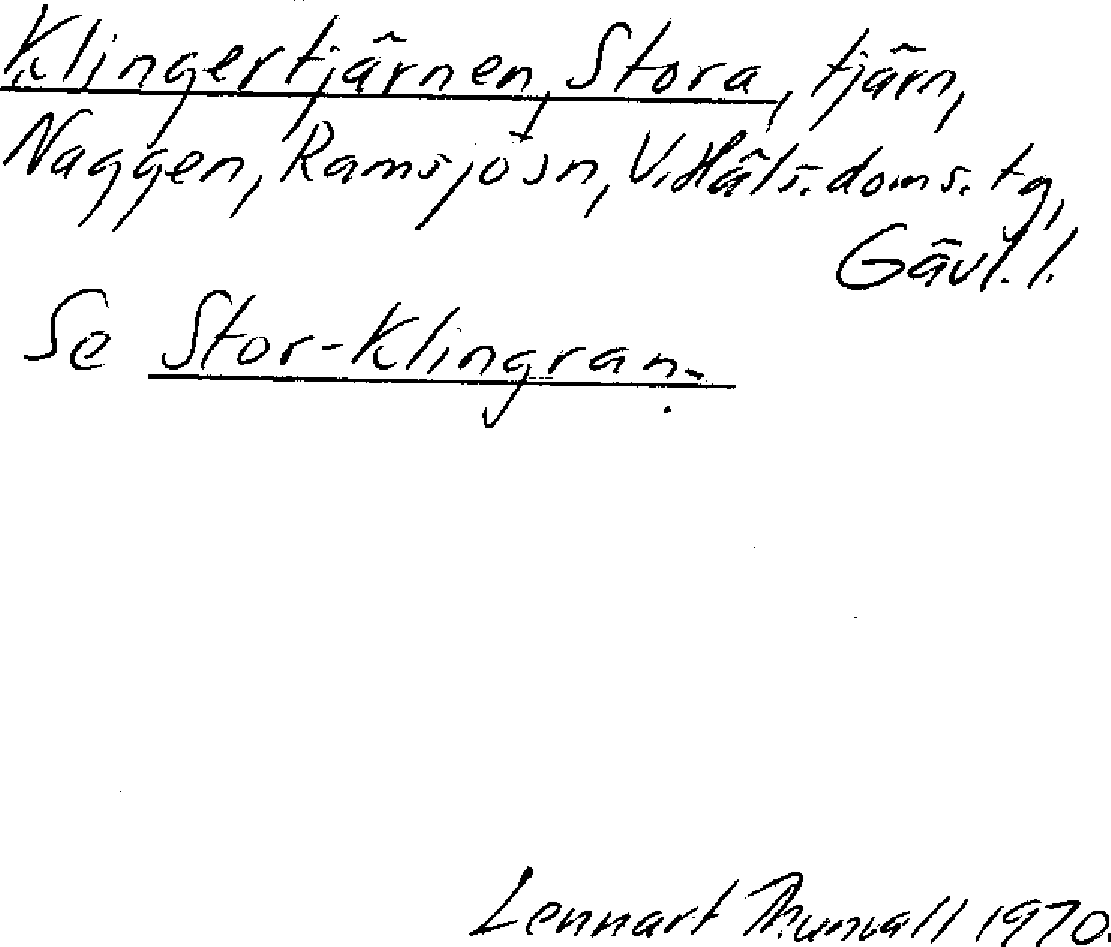 Klingertjärnen, Stora, tjärn,
Naggen, Ramsjö sn, V. Häls. doms. tg,
Gävl. l.
Se Stor-Klingran.
Lennart Thunvall 1970.